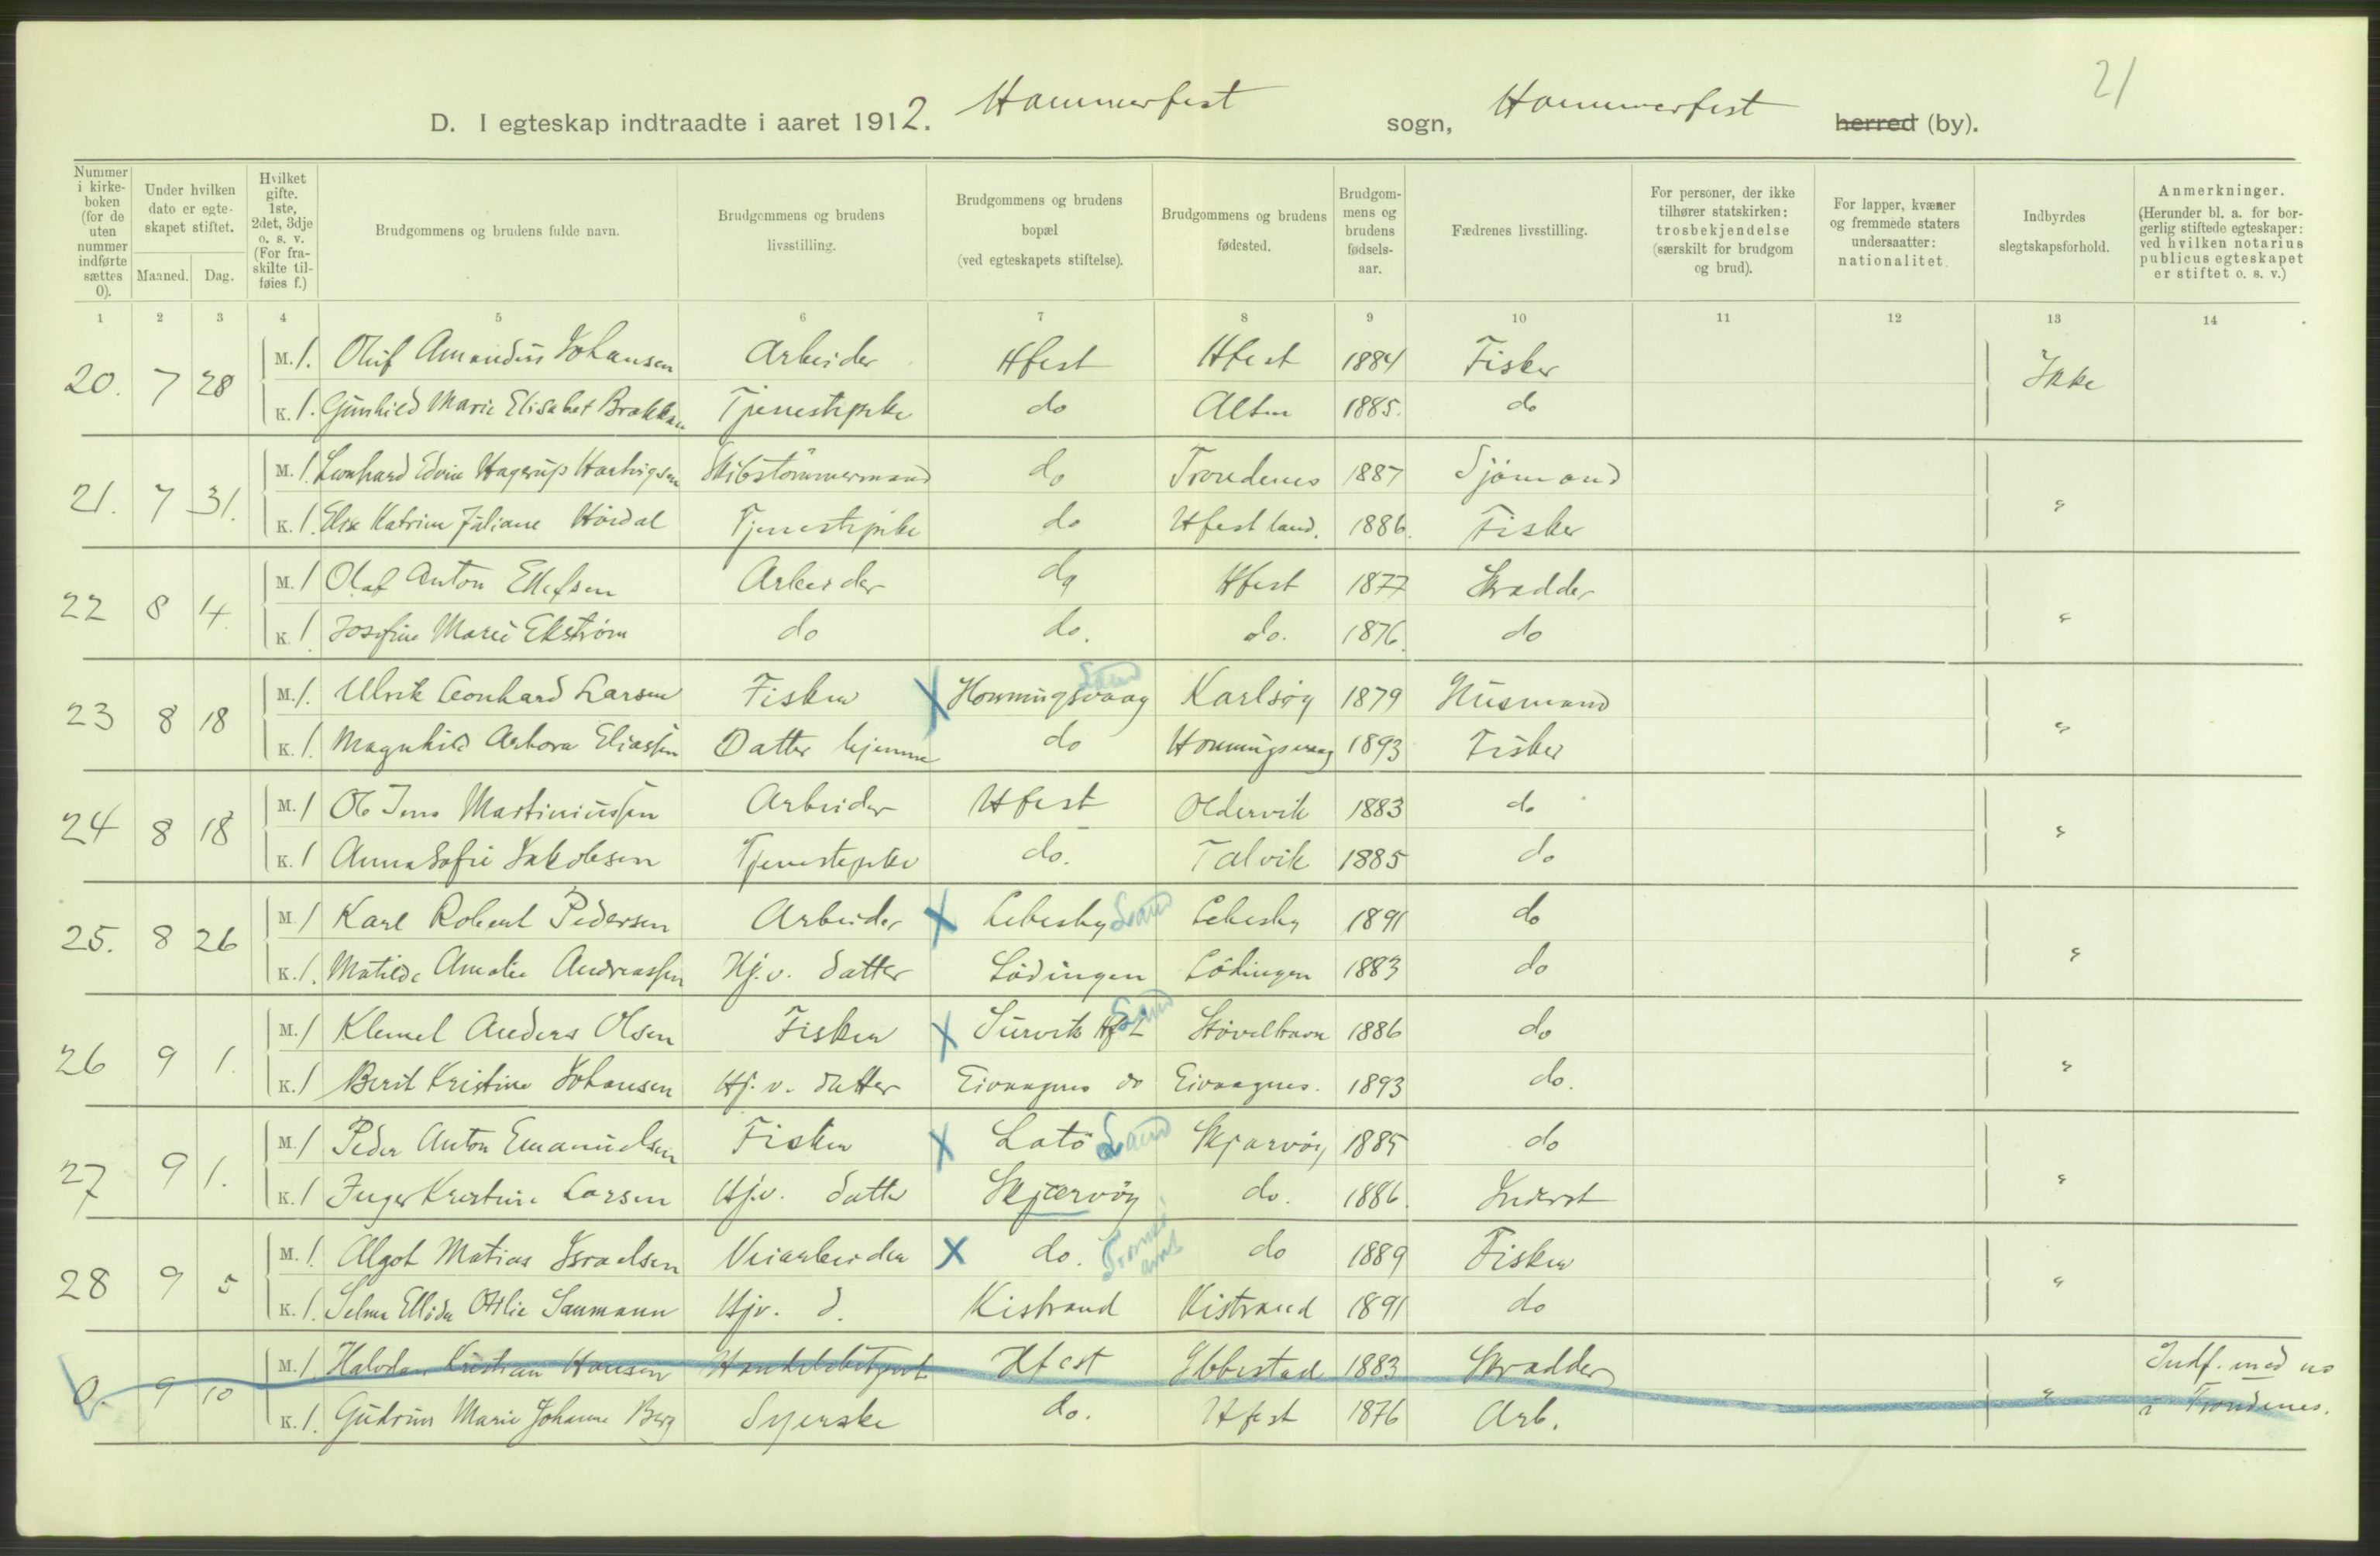 21
D. I egteskap indtraadte i aaret 1912. Hammerfest sogn, Hammerfest herred (by).
Nummer i kirkeboken (for de uten nummer indførte sættes 0).
Under hvilken dato er egteskapet stiftet.
Maaned. Dag.
Hvilket gifte. 1ste, 2det, 3dje o. s. v. (For fraskilte tilføies f.)
Brudgommens og brudens fulde navn.
Brudgommens og brudens livsstilling.
Brudgommens og brudens bopæl (ved egteskapets stiftelse).
Brudgommens og brudens fødested.
Brudgommens og brudens fødselsaar.
Fædrenes livsstilling.
For personer, der ikke tilhører statskirken: trosbekjendelse (særskilt for brudgom og brud).
For lapper, kvæner og fremmede staters undersaatter: nationalitet.
Indbyrdes slegtskapsforhold.
Anmerkninger. (Herunder bl. a. for borgerlig stiftede egteskaper: ved hvilken notarius publicus egteskapet er stiftet o. s. v.)
1 2 3 4 5 6 7 8 9 10 11 12 13 14
20. 7 28 M. 1. Oluf Amandus Johansen Arbeider Hfest Hfest 1884 Fisker Ikke
K. 1. Gunhild Marie Elisabet Tjenestepike do Alten 1885. do
21. 7 31. M. 1. Leonhard Edvin Hagerup Hartvigsen Skibstömmermand do Trondenes 1887 Sjömand "
K. 1. Elise Katrine Juliane Tjenestepike do Hfest land. 1886. Fisker
22 8 14. M. 1 Olaf Anton Ellefsen Arbeider do Hfest 1877 Skrædder "
K. 1 Josefine Marie Ekström do do. do. 1876. do
23 8 18 M. 1. Ulrik Leonhard Larsen Fisker X Honningsvaag Land Karlsöy 1879 Husmand "
K. 1. Magnhild Arbora Eliassen Datter hjemme do Honningsvaag 1893 Fisker
24 8 18 M. 1 Ole Jens Martiniussen Arbeider Hfest Oldervik 1883 do "
K. 1 Anna Sofie Jakobsen Tjenestepike do. Talvik 1885 do
25. 8 26 M. 1 Karl Robert Pedersen Arbeider X Lebesby Land Lebesby 1891 do "
K. 1. Matilde Amalie Andreassen Hj.v. datter Lödingen Lödingen 1883 do
26 9 1. M. 1 Klemet Anders Olsen Fisker X Survik Hfst Land 1886 do "
K. 1 Berit Kristine Johansen Hj. v. datter Eivaagnes do Eivaagnes. 1893 do.
27 9 1. M. 1 Peder Anton Emanuelsen Fisker X Latö Land Skjærvöy 1885 do "
K. 1 Inger Kristine Larsen Hj.v. datter Skjærvöy do. 1886. Inderst
28 9 5 M. 1. Algot Matias Israelsen Veiarbeider X do. Tromsö amt do 1889 Fisker "
K. 1. Selma Ellida Otilie Saumann Hjv. d. Kistrand Kistrand 1891 do
0. 9 10 M. 1. Halvdan Kristian Hansen Handelsbetjent Hfest Ibbestad 1883 Skrædder " Indf. med no
K. 1. Gudrun Marie Johanne Berg Syerske do. Hfest 1876 Arb. i Trondenes.